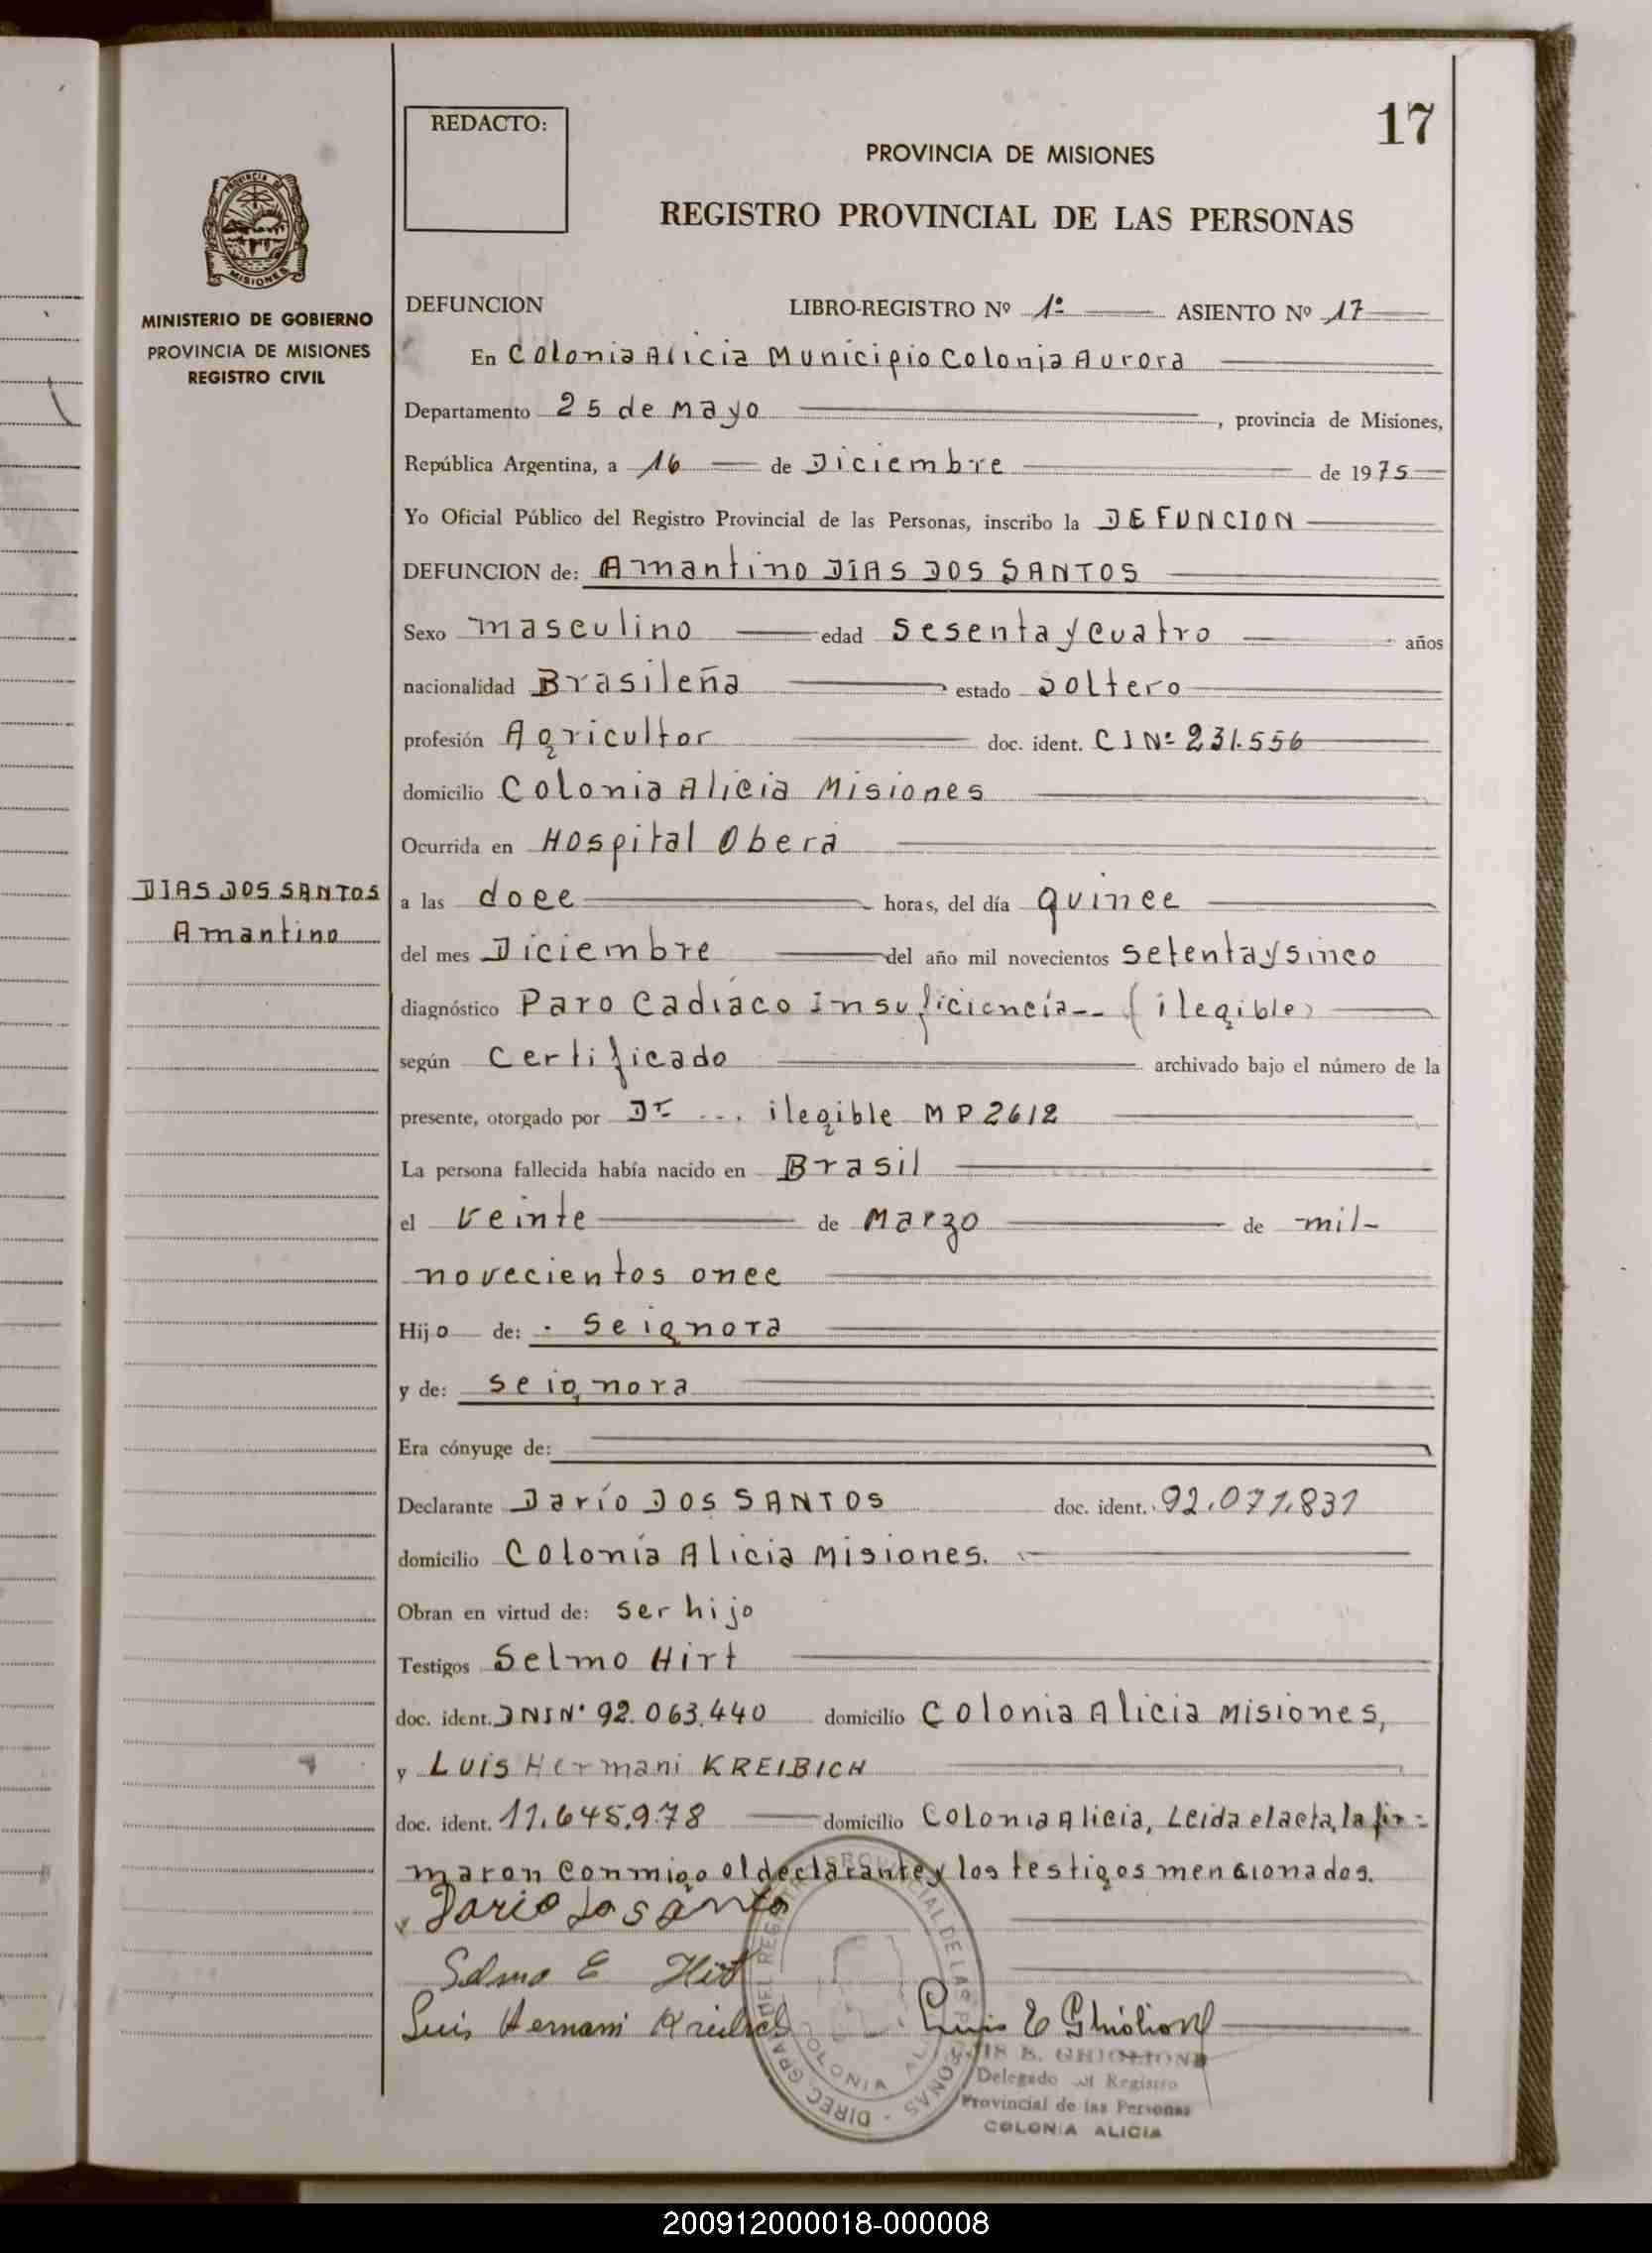 17
REDACTO:
PROVINCIA DE MISIONES
REGISTRO PROVINCIAL DE LAS PERSONAS
PROVINCIA DE
MISIONES
MINISTERIO DE GOBIERNO
PROVINCIA DE MISIONES
REGISTRO CIVIL
DEFUNCION LIBRO-REGISTRO Nº 1º ASIENTO Nº 17
En Colonia Alicia Municipio Colonia Aurora
Departamento 25 de Mayo, provincia de Misiones,
República Argentina, a 16 de Diciembre de 1975
Yo Oficial Público del Registro Provincial de las Personas, inscribo la DEFUNCION
DEFUNCION de: Amantino DIAS DOS SANTOS
Sexo masculino edad Sesenta y cuatro años
nacionalidad Brasileña estado Soltero
profesión Agricultor doc. ident. C I Nº 231.556
domicilio Colonia Alicia Misiones
Ocurrida en Hospital Oberá
DIAS DOS SANTOS
Amantino
a las doce horas, del día quince
del mes Diciembre del año mil novecientos setenta y sinco
diagnóstico Paro Cadíaco Insuficiencía-- (ilegible)
según Certificado archivado bajo el número de la
presente, otorgado por Dr ... ilegible MP 2612
La persona fallecida había nacido en Brasil
el veinte de Marzo de mil-
novecientos once
Hijo de: Seignora
y de: seignora
Era cónyuge de:
Declarante Darío DOS SANTOS doc. ident. 92.071.831
domicilio Colonia Alicia Misiones.
Obran en virtud de: ser hijo
Testigos Selmo Hirt
doc. ident. DNI Nº 92.063.440 domicilio Colonia Alicia Misiones,
y Luis Hermani KREIBICH
doc. ident. 11.645.978 domicilio Colonia Alicia, Leida el acta, la fir=
maron conmigo el declarante y los testigos mencionados.
Dario dos Santo
Selmo E Hirt
Luis Hernani Kreibich Luis E Ghiglione
DIREC. GRAL. DEL REGISTRO PROVINCIAL DE LAS PERSONAS
COLONIA ALICIA
LUIS E. GHIGLIONE
Delegado del Registro
Provincial de las Personas
COLONIA ALICIA
200912000018-000008